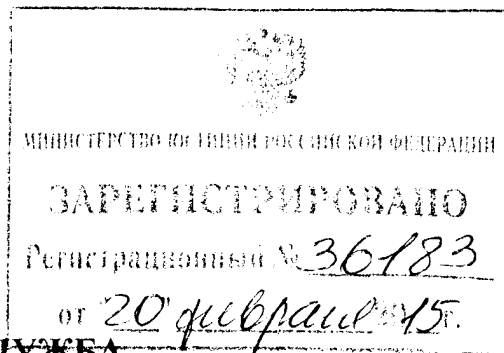 МИНИСТЕРСТВО ЮСТИЦИИ РОССИЙСКОЙ ФЕДЕРАЦИИ
ЗАРЕГИСТРИРОВАНО
Регистрационный № 36183
от "20" февраля 2015г.